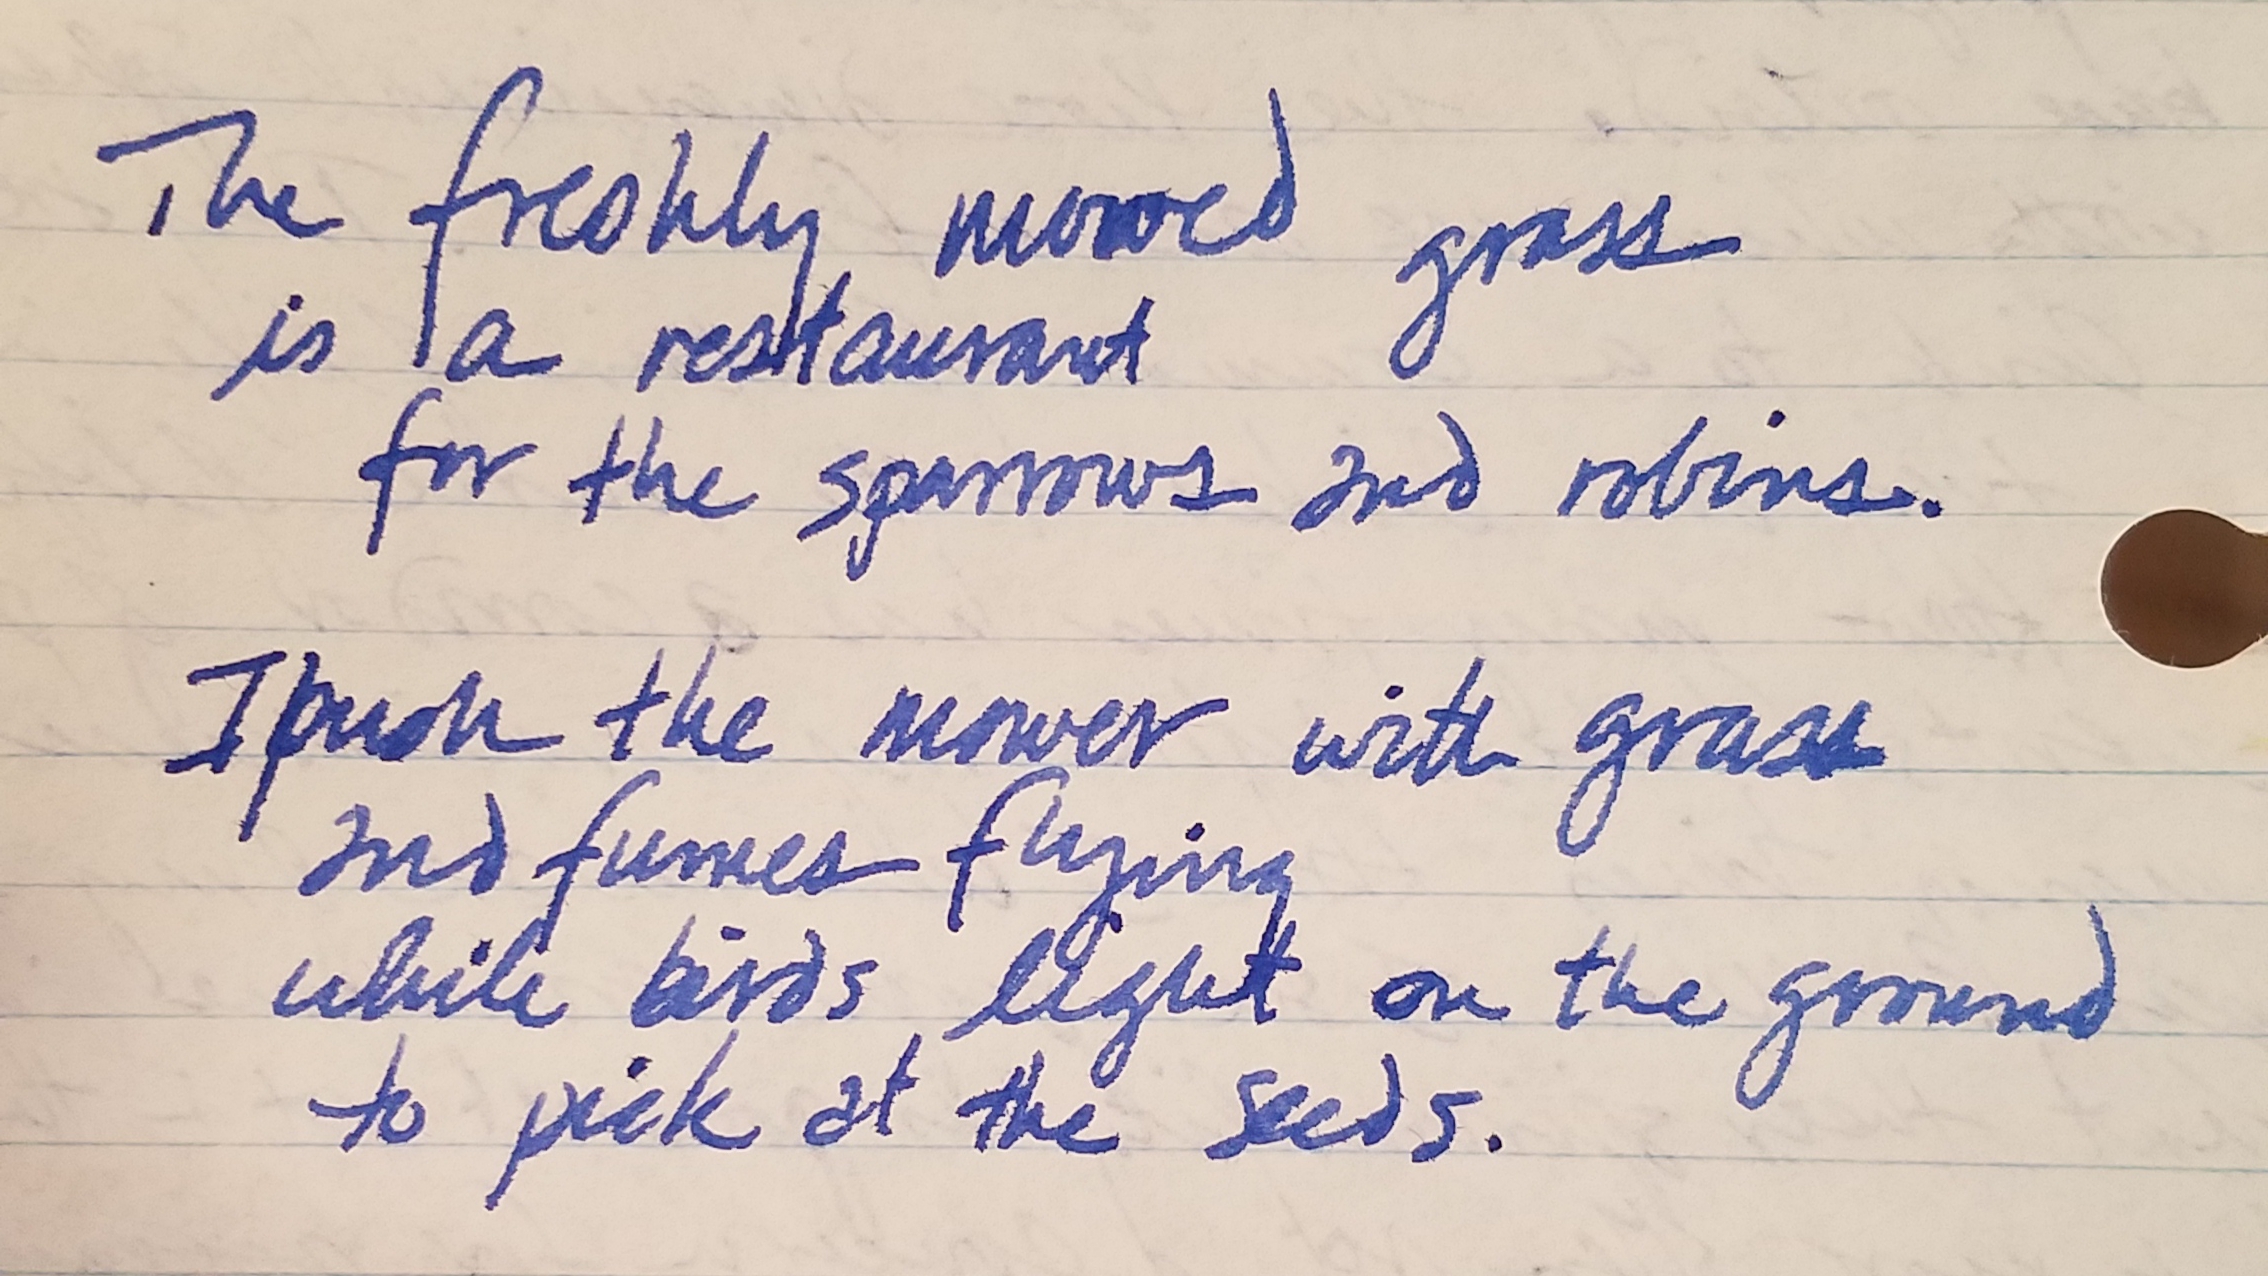 The freshly mowed grass
is a restaurant
for the sparrows and robins.
I push the mower with grass
and fumes flying
while birds light on the ground
to pick at the seeds.